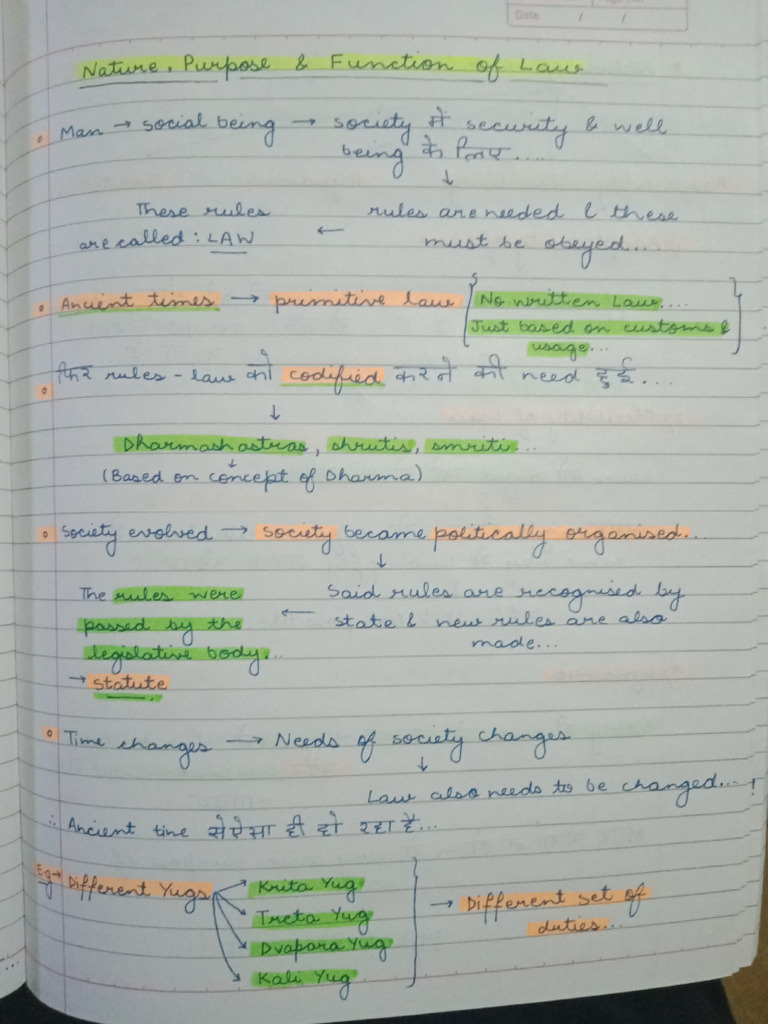 Date / /
Nature, Purpose & Function of Law
Man → social being → society में security & well
being के लिए....
↓
These rules ← rules are needed & these
are called : LAW must be obeyed...
Ancient times → primitive law { No written Law....
Just based on customs &
usage... }
फिर rules - law को codified करने की need हुई....
↓
Dharmashastras, shrutis, smriti...
↓
(Based on concept of Dharma)
Society evolved → Society became politically organised...
↓
The rules were ← Said rules are recognised by
passed by the state & new rules are also
legislative body... made...
→ statute
Time changes → Needs of society changes
↓
Law also needs to be changed...!
∴ Ancient tine से ऐसा ही हो रहा है...
Eg → Different Yugs → Krita Yug
Treta Yug → Different set of
Dvapara Yug duties...
Kali Yug